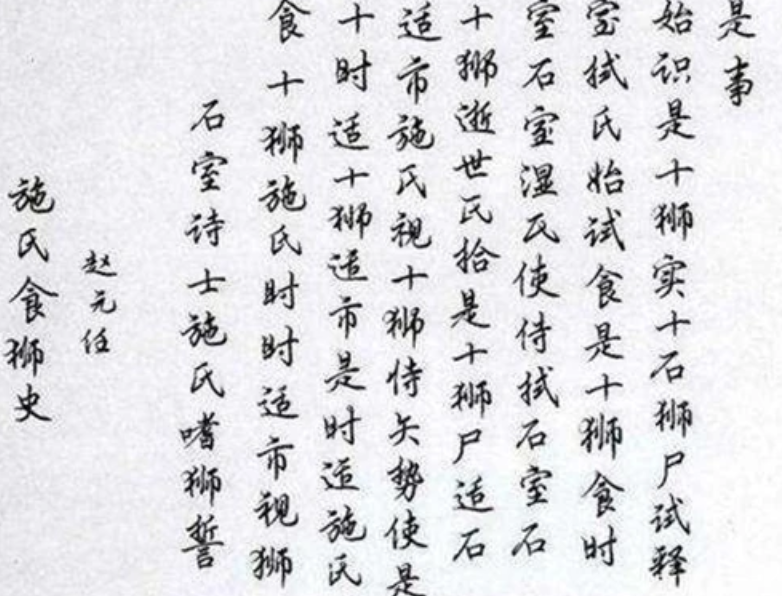 施氏食狮史
赵元任
石室诗士施氏嗜狮誓
食十狮施氏时时适市视狮
十时适十狮适市是时适施氏
适市施氏视十狮侍矢势使是
十狮逝世氏拾是十狮尸适石
室石室湿氏使侍拭石室石
室拭氏始试食是十狮食时
始识是十狮实十石狮尸试释
是事